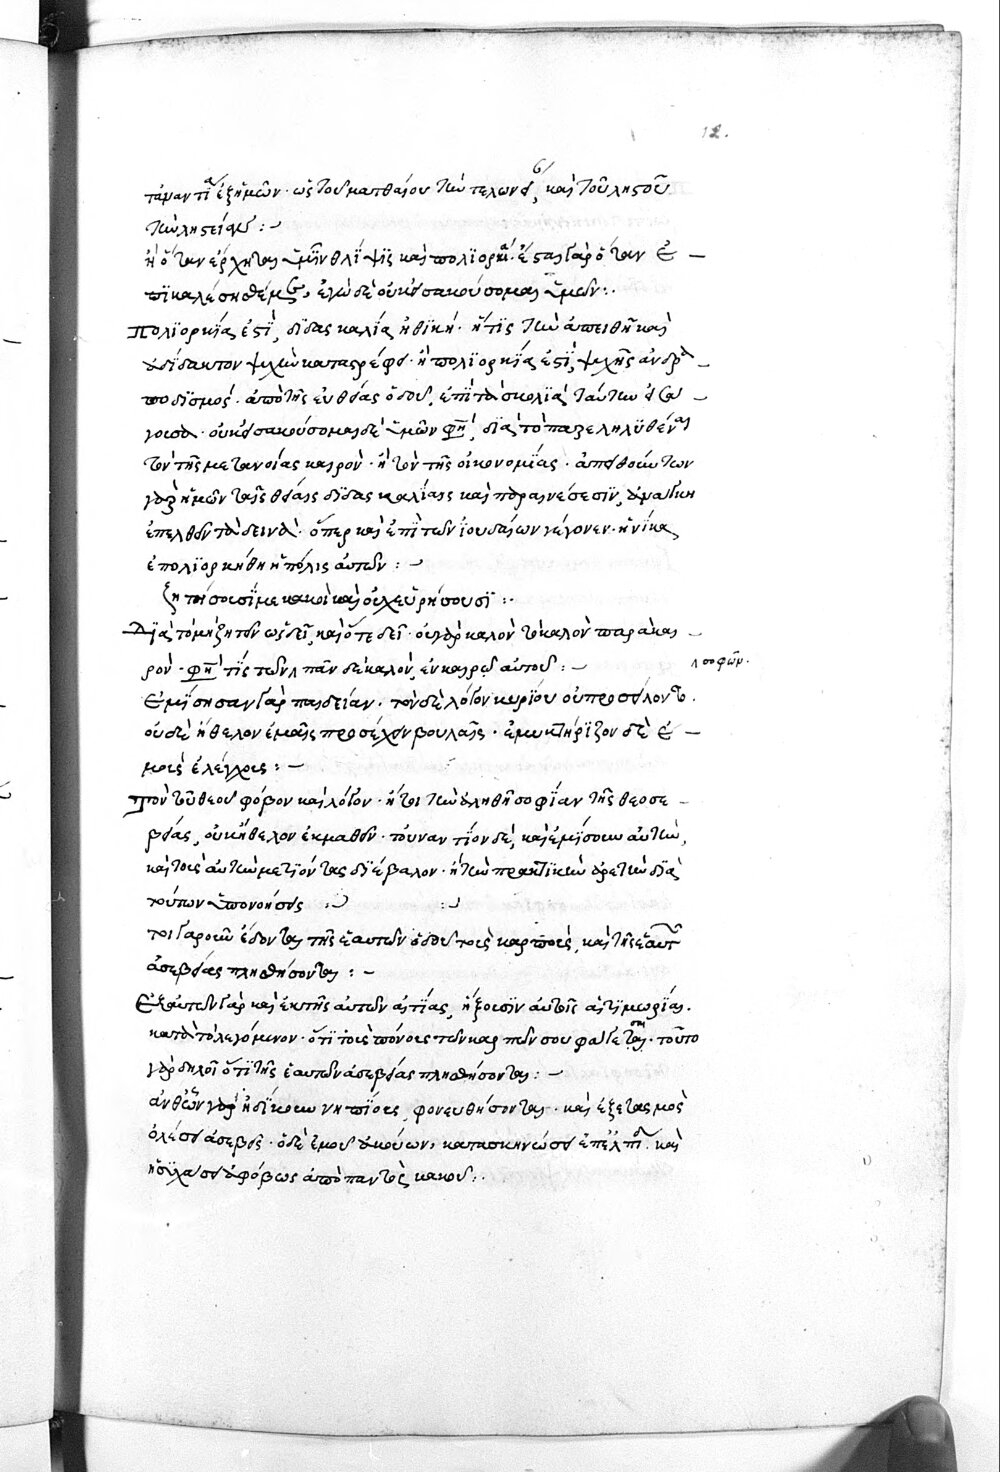 12.
τἀναντία ἐξ ἡμῶν· ὡς τοῦ ματθαίου τὴν τελωνείαν, καὶ τοῦ ληστοῦ
τὴν ληστείαν :~
ἢ ὅταν ἔρχηται ὑμῖν θλίψις καὶ πολιορκία· ἔσται γὰρ ὅταν ἐ
πικαλέσησθέ με, ἐγὼ δὲ οὐκ εἰσακούσομαι ὑμῶν:.
Πολιορκία ἐστὶ, διδασκαλία ἠθικὴ· ἥτις τὴν ἀπειθῆ καὶ
ἀδίδακτον ψυχὴν καταστρέφει· ἢ πολιορκία ἐστὶ, ψυχῆς ἀνδρα
ποδισμὸς· ἀπὸ τῆς εὐθείας ὁδοῦ, ἐπὶ τὰ σκολιὰ ταύτην
οὐκ εἰσακούσομαι δὲ ὑμῶν φησὶ, διὰ τὸ παρεληλυθέναι
τὸν τῆς μετανοίας καιρὸν· ἢ τὸν τῆς οἰκονομίας· ἀπειθούντων
γὰρ ἡμῶν ταῖς θείαις διδασκαλίαις καὶ παραινέσεσιν,
ἐπελθεῖν τὰ δεινὰ· ὅπερ καὶ ἐπὶ τῶν ἰουδαίων γέγονεν· ἡνίκα
ἐπολιορκήθη ἡ πόλις αὐτῶν :~
ζητήσουσί με κακοὶ καὶ οὐχ εὑρήσουσι :.
Διὰ τὸ μὴ ζητεῖν ὡς δεῖ, καὶ ὅτε δεῖ· οὐ γὰρ καλὸν τὸ καλὸν παρὰ και
ρὸν· φησὶ τίς τῶν πᾶν δὲ καλὸν, ἐν καιρῷ αὐτοῦ :~
σοφῶν.
Ἐμίσησαν γὰρ παιδείαν· τὸν δὲ λόγον κυρίου οὐ προσείλοντο.
οὐδὲ ἤθελον ἐμαῖς προσέχειν βουλαῖς· ἐμυκτήριζον δὲ ἐ
μοὺς ἐλέγχους :~
Τὸν τοῦ θεοῦ φόβον καὶ λόγον· ἤτοι τὴν ἀληθῆ σοφίαν τῆς θεοσε
βείας, οὐκ ἤθελον ἐκμαθεῖν· τοὐναντίον δὲ, καὶ ἐμίσουν αὐτὴν,
καὶ τοὺς αὐτὴν μετιόντας διέβαλον· ἢ τὴν πρακτικὴν ἀρετὴν διὰ
τούτων ὑπονοήσεις :~ :~
τοιγαροῦν ἔδονται τῆς ἑαυτῶν ὁδοῦ τοὺς καρποὺς, καὶ τῆς ἑαυτῶν
ἀσεβείας πλησθήσονται :~
Ἐξ αὐτῶν γὰρ καὶ ἐκ τῆς αὐτῶν αἰτίας, ἥξουσιν αὐτοῖς αἱ τιμωρίαι.
κατὰ τὸ λεγόμενον· ὅτι τοὺς πόνους τῶν καρπῶν σου φάγεσαι· τοῦτο
γὰρ δηλοῖ ὅτι τῆς ἑαυτῶν ἀσεβείας πλησθήσονται :~
ἀνθ' ὧν γὰρ ἠδίκουν νηπίους, φονευθήσονται· καὶ ἐξετασμὸς
ὀλέσει ἀσεβεῖς· ὁ δὲ ἐμοῦ ἀκούων, κατασκηνώσει ἐπ' ἐλπίδι· καὶ
ἡσυχάσει ἀφόβως ἀπὸ παντὸς κακοῦ :.